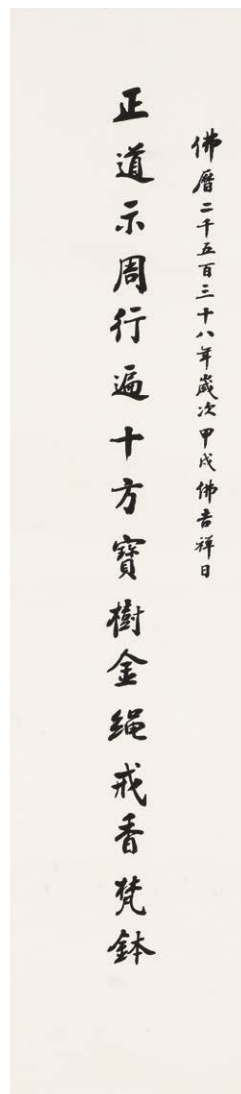 佛曆二千五百三十八年歲次甲戌佛吉祥日
正道示周行遍十方寶樹金繩戒香梵鉢